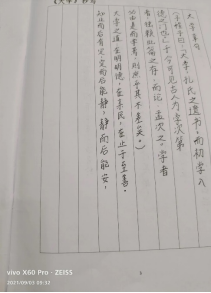 大学章句
(子程子曰:"大学,孔氏之遗书,而初学入
德之门也。"于今可见古人为学次第
者,独赖此篇之存,而论、孟次之。学者
必由是而学焉,则庶乎其不差矣。)
大学之道,在明明德,在亲民,在止于至善。
知止而后有定,定而后能静,静而后能安,
vivo X60 Pro · ZEISS
2021/09/03